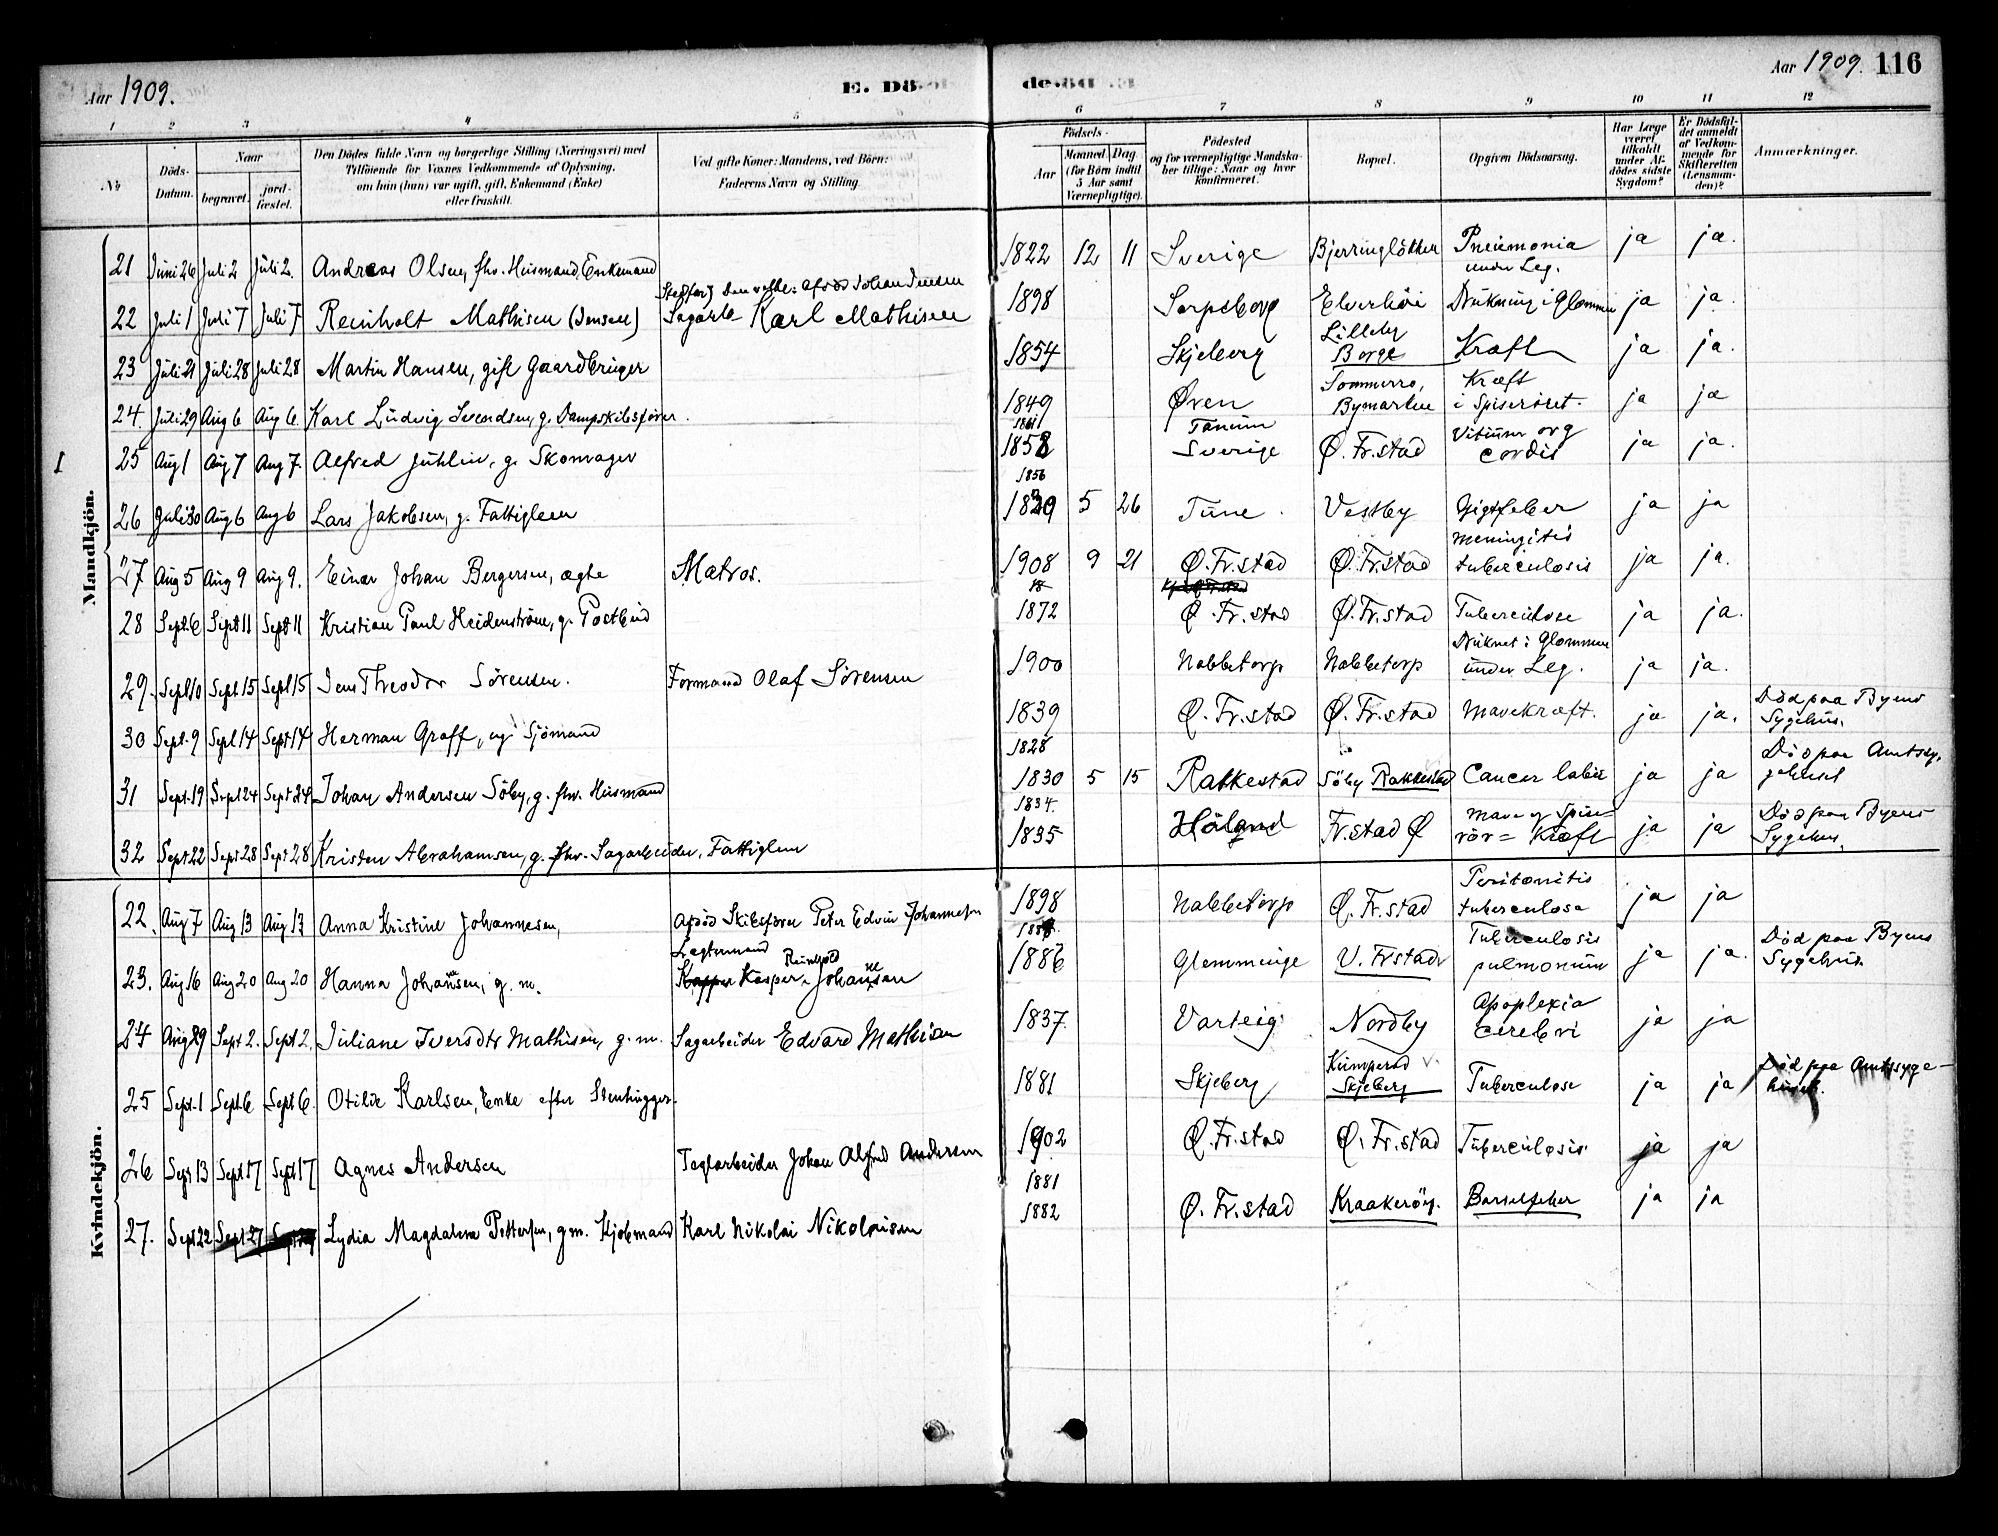 Aar 1909.
E. Dö-
de.
Aar 1909. 116
1 2 3 4 5 6 7 8 9 10 11 12
№
Döds-Datum.
Naar
begravet.
jord-fæstet.
Den Dödes fulde Navn og borgerlige Stilling (Næringsvei) med
Tilföiende for Voxnes Vedkommende af Oplysning,
om han (hun) var ugift, gift, Enkemand (Enke)
eller fraskilt.
Ved gifte Koner: Mandens, ved Börn:
Faderens Navn og Stilling.
Födsels-
Aar
Maaned. Dag.
(for Börn indtil 5 Aar samt Værnepligtige).
Födested
og for værnepligtige Mandska-
ber tillige: Naar og hvor
konfirmeret.
Bopæl.
Opgiven Dödsaarsag.
Har Læge været tilkaldt under Af-dödes sidste Sygdom?
Er Dödsfal-det anmeldt af Vedkom-mende for Skifteretten (Lensman-den)?
Anmærkninger.
Mandkjön.
21 Juni 26 Juli 2 Juli 2. Andreas Olsen, fhv. Husmand, Enkemand 1822 12 11 Sverige Bjerringløkken Pneumonia under Leg. ja ja.
22 Juli 1 Juli 7 Juli 7 Reinholt Mathisen (Jensen) Sagarb. Karl Mathisen 1898 Sarpsborg Elverhöi Drukning i Glommen ja ja.
23 Juli 21 Juli 28 Juli 28 Martin Hansen, gift Gaardbruger 1854 Skjeberg Lilleby Borge Kræft ja ja.
24. Juli 29 Aug 6 Aug 6. Karl Ludvig Svendsen, g. Dampskibsfører. 1849 Øren Sommerro, Bymarken Kræft i Spiserøret. ja ja
I 25 Aug 1 Aug 7 Aug 7. Alfred Juhlin, g. Skomager 1861 1858 Tanum Sverige Ø. Fr.stad Vitium org cordis ja ja.
26 Juli 30 Aug 6 Aug 6 Lars Jakobsen, g. Fattiglem 1856 1829 5 26 Tune. Vestby Gigtfeber ja ja
27 Aug 5 Aug 9 Aug 9. Einar Johan Bergersen, ægte Matros. 1908 9 21 Ø. Fr.stad Ø. Fr.stad meningitis tuberculosis ja ja.
28 Sept. 6 Sept 11 Sept 11 Kristian Paul Heidenstrøm, g. Postbud 1872 Ø. Fr.stad Ø. Fr.stad Tuberculose ja ja.
29. Sept 10 Sept. 15 Sept 15 Jens Theodor Sörensen. Formand Olaf Sörensen 1900 Nabbetorp Nabbetorp Druknet i Glommen under Leg. ja ja.
30 Sept. 9 Sept 14 Sept 14 Herman Graff, ugi Sjömand 1839 Ø. Fr.stad Ø. Fr.stad Mavekræft. ja ja. Död paa Byens Sygehus.
31 Sept. 19 Sept 24 Sept 24 Johan Andersen Söby, g. fhv. Husmand 1828 1830 5 15 Rakkestad Söby Rakkestad Cancer labii ja ja Död paa Amtssygehuset
32 Sept 22 Sept 28 Sept 28 Kristen Abrahamsen, g. fhv. Sagarbeider, Fattiglem 1834. 1835 Høland Fr.stad Ø Mave og Spiserör = Kræft ja ja Död paa Byens Sygehus.
Kvindekjön.
22. Aug 7 Aug 13 Aug 13 Anna Kristine Johannesen, Afdød Skibsfører Peter Edvin Johannesen 1898 Nabbetorp Ø. Fr.stad Peritonitis tuberculosa ja ja
23. Aug 16 Aug 20 Aug 20 Hanna Johansen, g. m. Kasper Reinhold Johansen 1886 Glemminge V. Frstad Tuberculosis pulmonum ja ja. Död paa Byens Sygehus.
24 Aug 29 Sept 2. Sept 2. Juliane Iversdtr Mathisen, g. m. Sagarbeider Edvard Mathisen 1837. Varteig Nordby Apoplexia cerebri ja ja
25 Sept. 1 Sept. 6 Sept 6. Otilie Karlsen, Enke efter Stenhugger. 1881 Skjeberg Skjeberg Tuberculose ja ja Död paa Amtssygehuset.
26 Sept 13 Sept 17 Sept 17 Agnes Andersen Teglarbeider Johan Alfred Andersen 1902 Ø. Fr.stad Ø. Fr.stad Tuberculosis ja ja
27. Sept 22 Sept 27 Lydia Magdalena Pettersen, gm. Kjøbmand Karl Nikolai Nikolaisen 1881 1882 Ø. Fr.stad Kraakeröy. Barselfeber ja ja